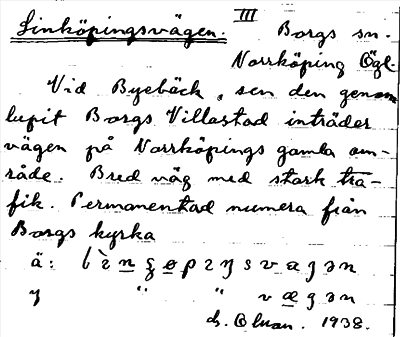 III
Linköpingsvägen. Borgs sn.
Norrköping Ögl.
Vid Byebäck, sen den genom
lupit Borgs Villastad inträder
vägen på Norrköpings gamla om-
råde. Bred väg med stark tra-
fik. Permanentad numera från
Borgs kyrka
ä:
y " "
1938.